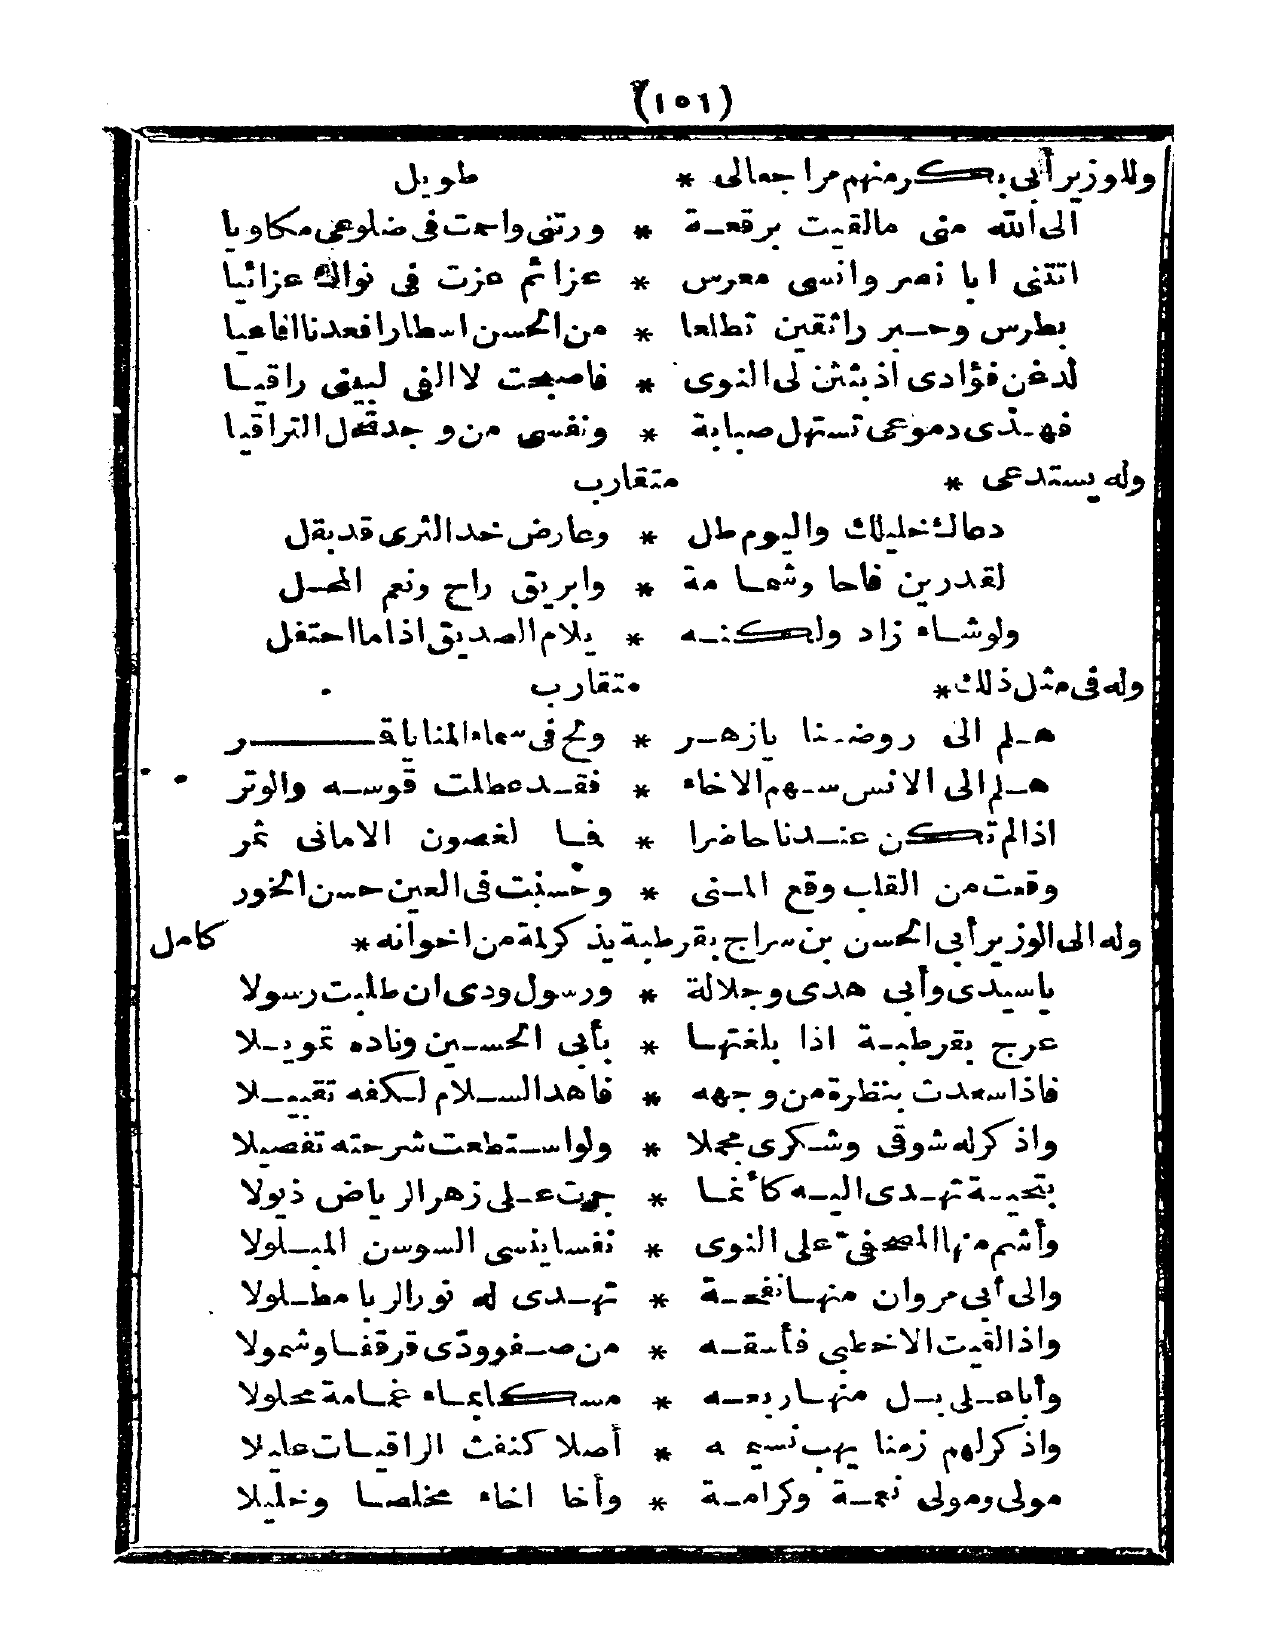 (١٥٦)
وللوزير أبي بكر منهم مراجعا لى * طويل
الى الله منى مالقيت برقعة * ورتنى واحمت فى ضلوعى مكاويا
اتتنى ابا نصر وانسى معرس * عزائم عزت فى نواك عزائيا
بطرس وحبر رائقين تطلعا * من الحسن اسطارا فعدنا افاعيا
لدغن فؤادى اذ بثثن لى النوى * فاصبحت لا الفى لبينى راقيا
فهذى دموعى تستهل صبابة * ونفسى من وجد تحل التراقيا
وله يستدعى * متقارب
دعاك خليلك واليوم طل * وعارض خد الثرى قد بقل
لقدرين فاحا وشمامة * وابريق راح ونعم المحل
ولو شاء زاد ولكنه * يلام الصديق اذا ما احتفل
وله فى مثل ذلك * متقارب
هلم الى روضنا يا زهر * ولح فى سماء المنا يا قمر
هلم الى الانس سهم الاخاء * فقد عطلت قوسه والوتر
اذا لم تكن عندنا حاضرا * فما لغصون الامانى ثمر
وقعت من القلب وقع المنى * وحسنت فى العين حسن الحور
وله الى الوزير أبي الحسن بن سراج بقرطبة يذكر لمة من اخوانه * كامل
يا سيدى وأبي هدى وجلالة * ورسول ودى ان طلبت رسولا
عرج بقرطبة اذا بلغتها * بأبي الحسين وناده تمويلا
فاذا سعدت بنظرة من وجهه * فاهد السلام لكفه تقبيلا
واذكر له شوقى وشكرى مجملا * ولو استطعت شرحته تفصيلا
بتحية تهدى اليه كأنما * جرت على زهر الرياض ذيولا
وأشم منها المصحفى على النوى * نفسا ينسى السوسن المبلولا
والى أبي مروان منها نفحة * تهدى له نور الربا مطلولا
واذا لقيت الاخطبى فأسقه * من صفو ودّى قرقفا وشمولا
وأبا على بل منها ربعه * مسكا بماء غمامة محلولا
واذكر لهم زمنا يهب نسيمه * أصلا كنفث الراقيات عليلا
مولى ومولى نعمة وكرامة * وأخا اخاء مخلصا وخليلا